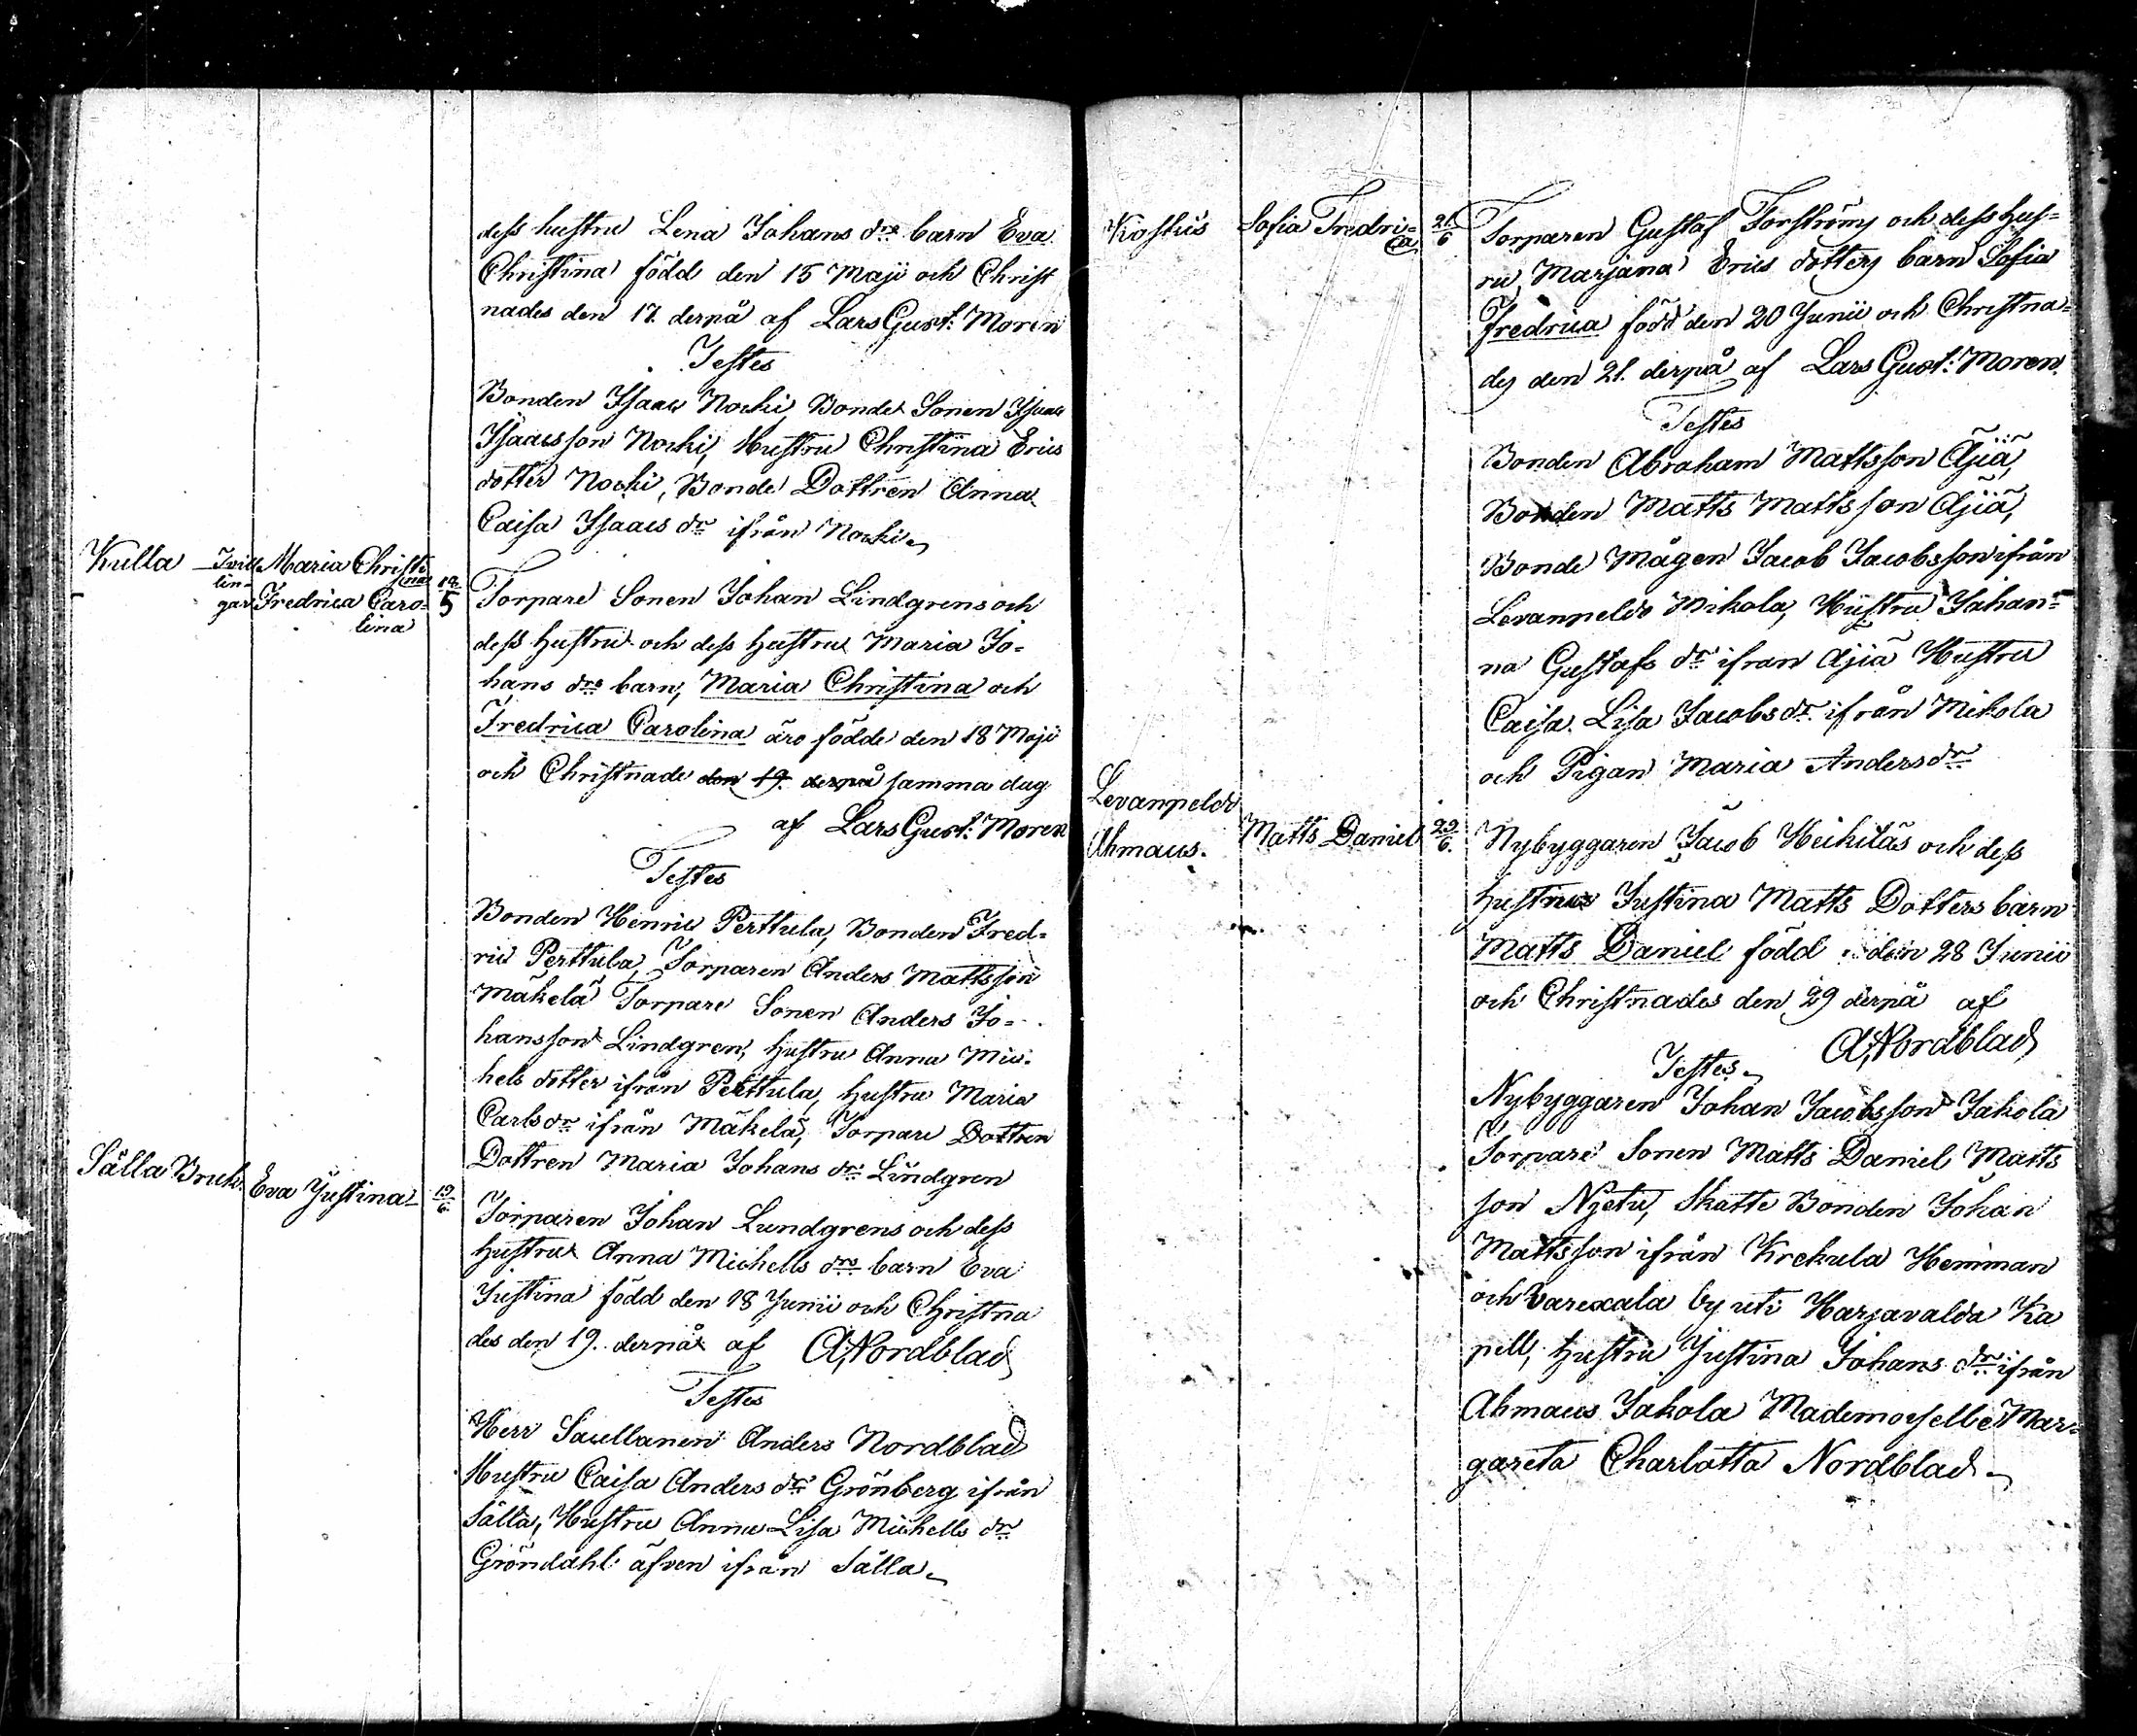 dess hustru Lena Johans drs barn Eva
Christina född den 15 Maji och Christ
nades den 17. derpå af Lars Gust: Moren
Testes
Bonden Isaac Nocki, Bonde Sonen Isaac
Isaacsson Nocki, Hustru Christina Erics
dotter Nocki, Bonde Dottren Anna
Caisa Isaacs dr ifrån Nocki
Kulla
Tvill
lin-
gar
Maria Christi
na
Fredrica Caro-
lina
19/5
Torpare Sonen Johan Lindgrens och
dess hustru och dess hustru Maria Jo=
hans drs barn, Maria Christina och
Fredrica Carolina äro födde den 18 Maji
och Christnade den 19. derpå samma dag
af Lars Gust: Moren
Testes
Bonden Henric Perttula, Bonden Fred-
ric Perttula, Torparen Anders Mattsson
Mäkelä Torpare Sonen Anders Jo=
hansson Lindgren, hustru Anna Mic-
hels dotter ifrån Perttula, hustru Maria
Carls dr ifrån Mäkelä, Torpare Dottren
Dottren Maria Johans dr Lindgren
Sälla Bruk.
Eva Justina
19/6
Torparen Johan Lundgrens och dess
hustru Anna Michells drs barn Eva
Justina född den 18 Junii och Christna
des den 19. derpå af A; Nordblad
Testes
Herr Anders Nordblad
Hustru Caisa Anders dr Grönberg ifrån
Sälla, Hustru Anna Lisa Michells dr
Gröndahl äfven ifrån Sälla
Kostus
Sofia Fredri=
ca
21/6
Torparen Gustaf Forströms och dess hus=
ru, Marjana Erics dotters barn Sofia
Fredrica född den 20 Junii och Christna=
des den 21. derpå af Lars Gust: Moren.
Testes
Bonden Abraham Mattsson Äjiä,
Bonden Matts Mattsson Äjiä,
Bonde Mågen Jacob Jacobsson ifrån
Levanpeldo Mikola, Hustru Johan=
na Gustafs dr ifran Äjiä Hustru
Caisa Lisa Jacobs dr ifrån Mikola
och Pigan Maria Anders dr
Levanpeldo
Ahmaus.
Matts Daniel
29/6.
Nybyggaren Jacob Heikiläs och dess
hustrus Justina Matts Dotters barn
Matts Daniel född den 28 Junii
och Christnades den 29 derpå af
A; Nordblad
Testes
Nybyggaren Johan Jacobsson Jakola
Torpare Sonen Matts Daniel Matts
son Nyetu, Skatte Bonden Johan
Mattsson ifrån Krekula Hemman
och Varexala by uti Harjavalda Ka
pell, hustru Justina Johans dr ifrån
Ahmaus Jakola Mademoiselle Mar=
gareta Charlotta Nordblad